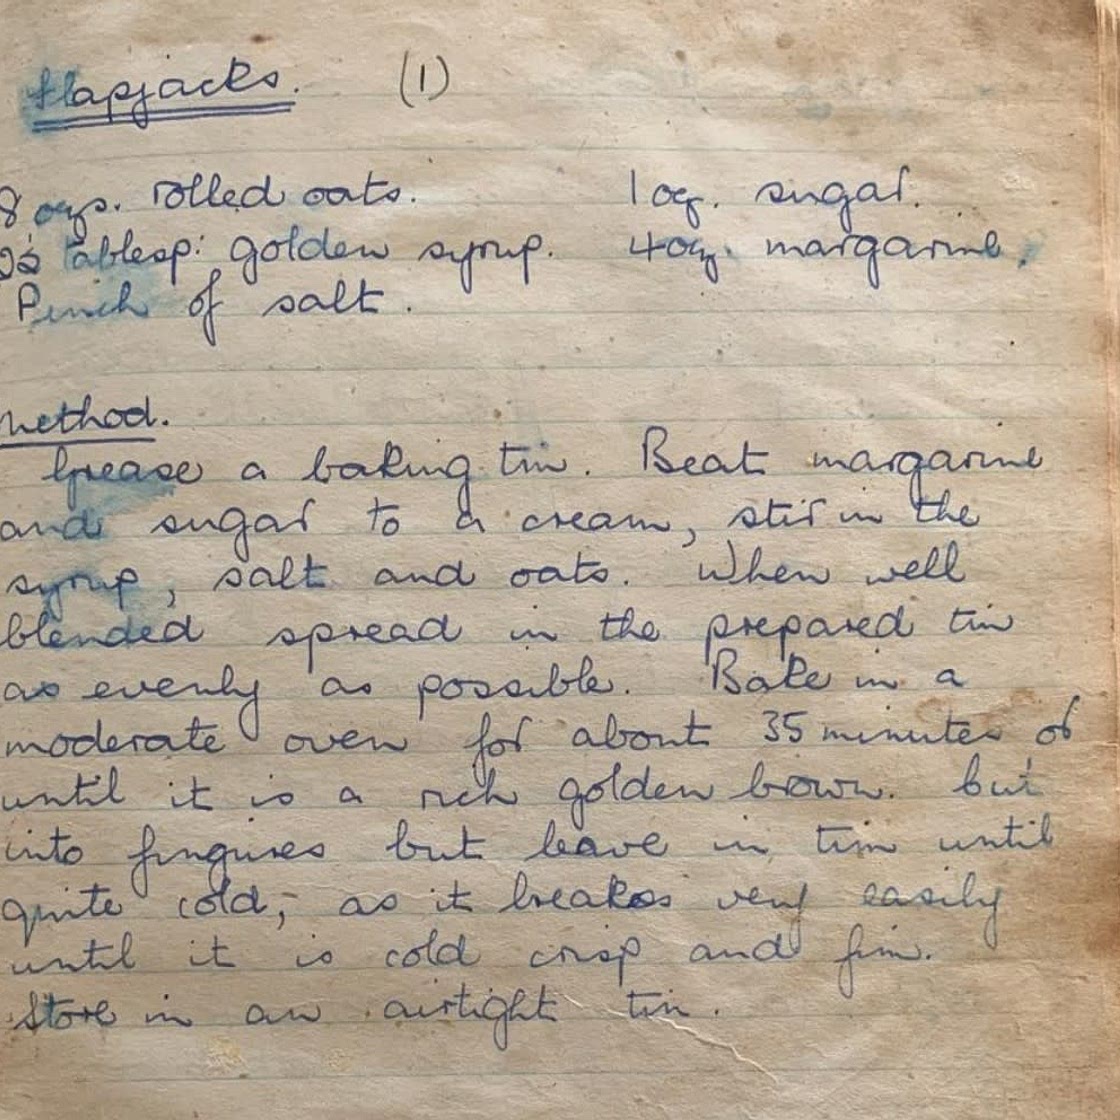 Flapjacks. (1)
8 ozs. rolled oats. 1 oz. sugar.
tablesp: golden syrup. 4 oz. margarine.
Pinch of salt.
Method.
Grease a baking tin. Beat margarine
and sugar to a cream, stir in the
syrup, salt and oats. When well
blended spread in the prepared tin
as evenly as possible. Bake in a
moderate oven for about 35 minutes or
until it is a rich golden brown. but
into fingures but leave in tin until
quite cold, as it breaks very easily
until it is cold crisp and firm.
Store in an airtight tin.